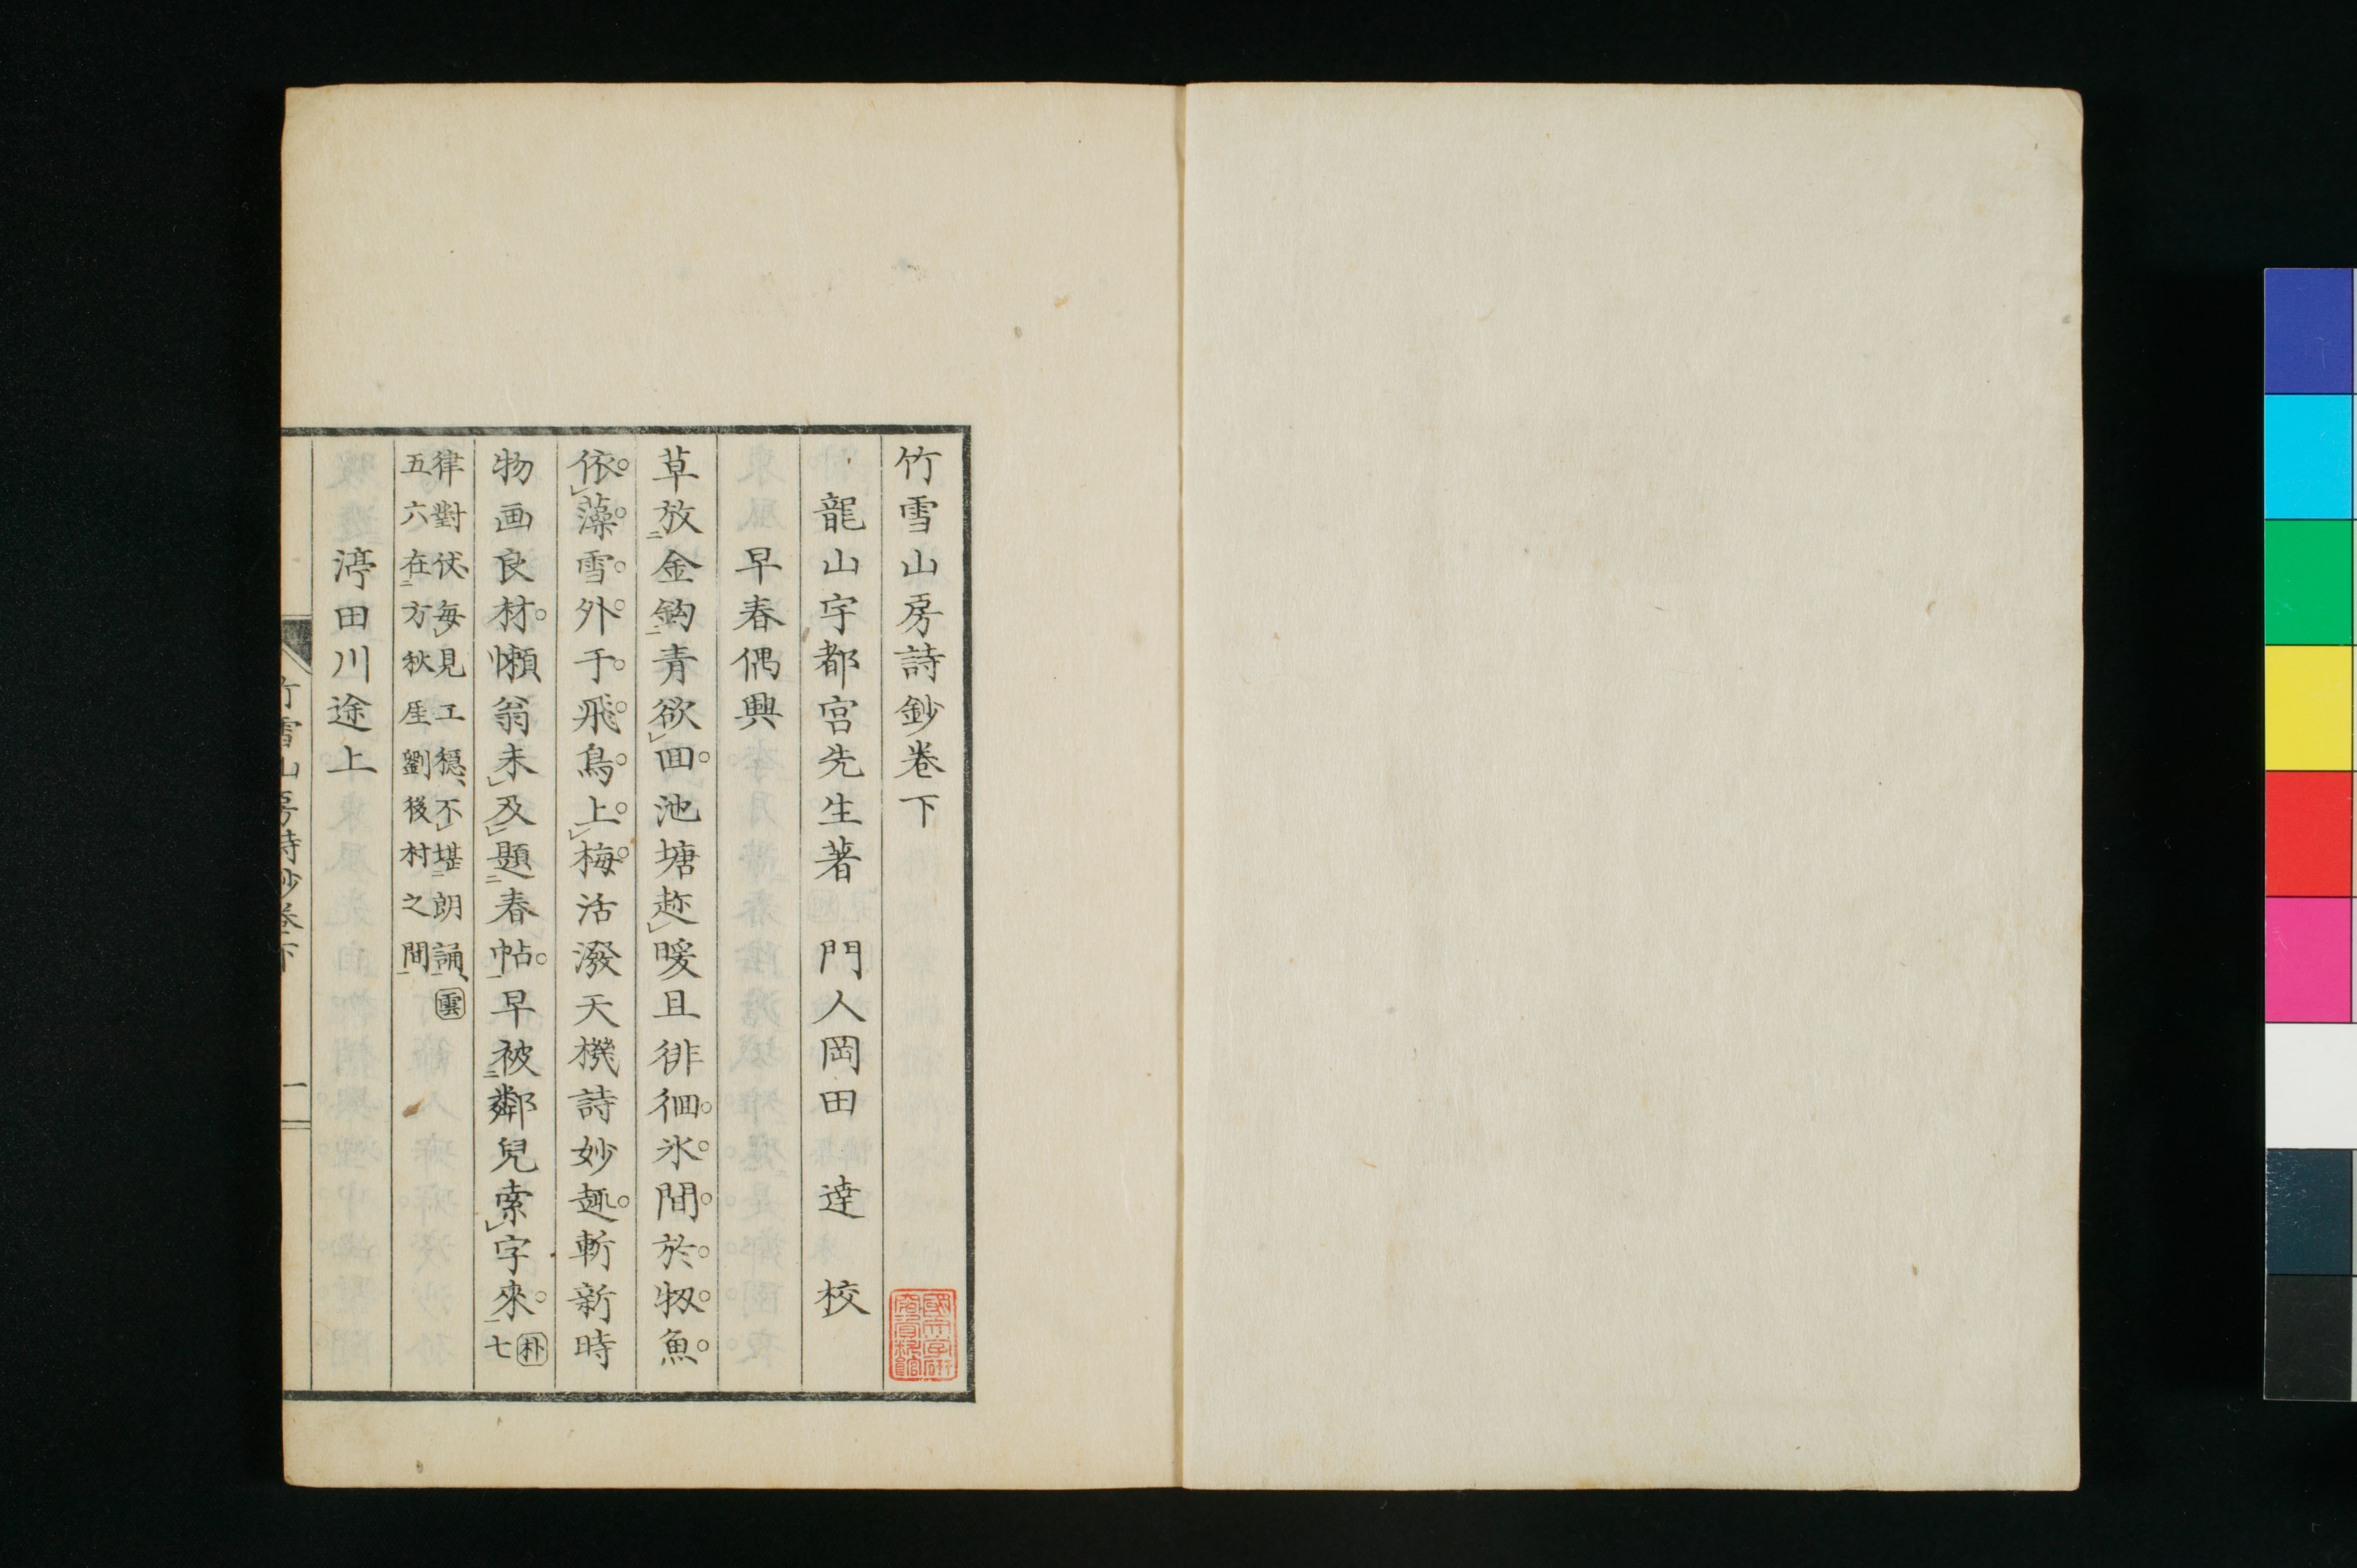 竹雪山房詩鈔卷下
龍山宇都宮先生著　門人岡田　達　校
早春偶興
草放金鈎青欲回。池塘趂暖且徘徊。氷間於牣魚
依藻。雪外于飛鳥上梅。活潑天機詩妙趣。斬新時
物画良材。懶翁未及題春帖。早被鄰兒索字來。朴七
律對伏、每見工穩、不堪朗誦、雲
五六在方秋厓劉後村之間
渟田川途上
竹雪山房詩鈔卷下
一
國文學研
究資料館